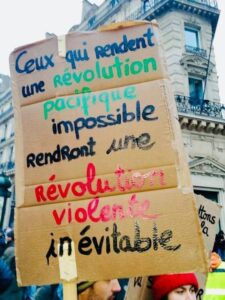 Ceux qui rendent
une RÉVOLUTION
pacifique
impossible
RENDRONT une
RÉVOLUTION
violente
inévitable